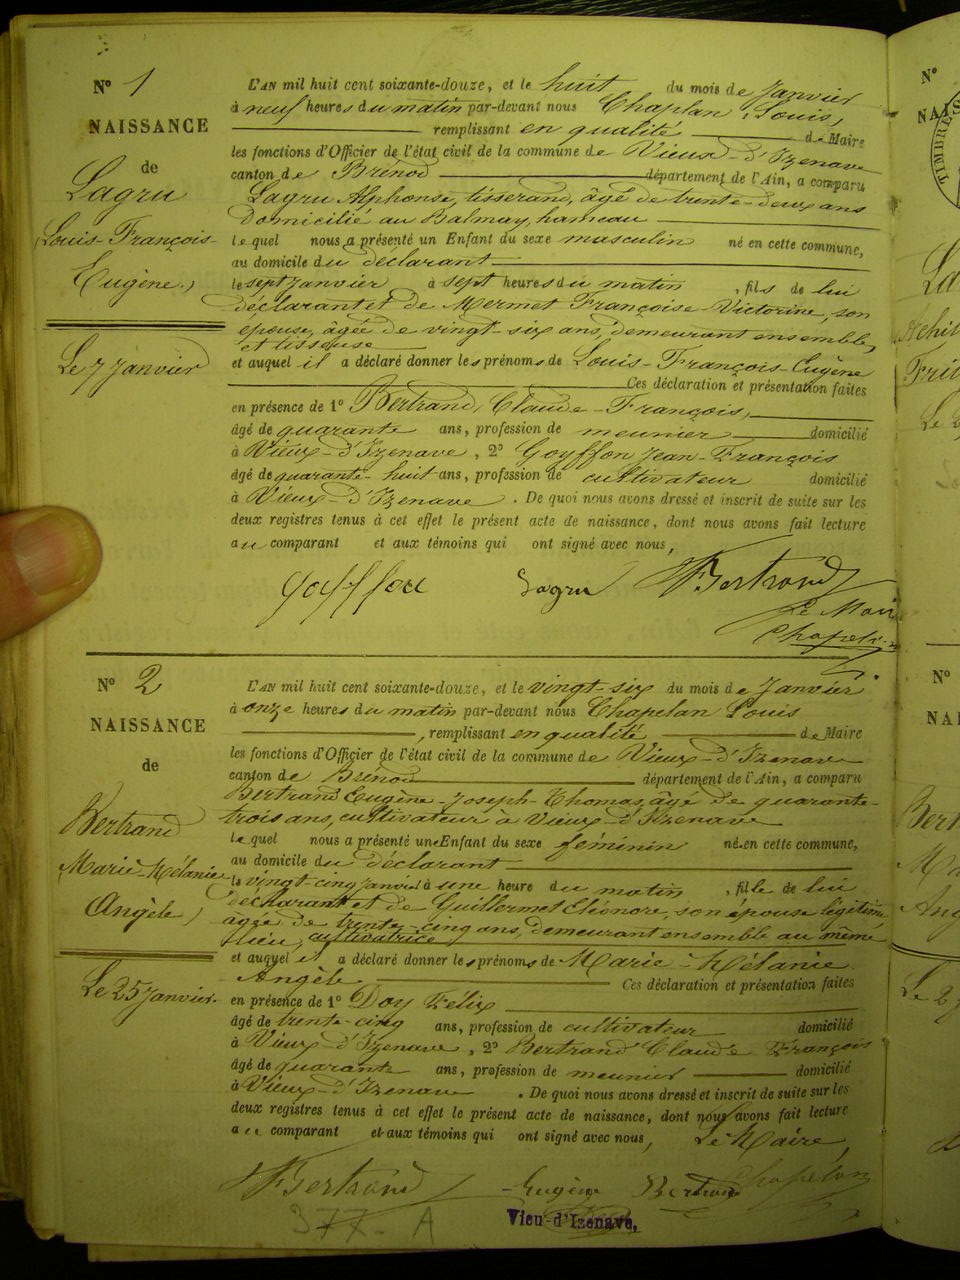 N° 1
NAISSANCE
de
Lagru
Louis-François-
Eugène
Le 7 Janvier
L'AN mil huit cent soixante-douze, et le huit du mois de Janvier
à neuf heures du matin par-devant nous Chaplan, Louis,
remplissant en qualité de Maire
les fonctions d'Officier de l'état civil de la commune de Vieux-d'Izenave
canton de Brénod département de l'Ain, a comparu
Lagru Alphonse, tisserand, âgé de trente-deux ans
domicilié au Balmay, hameau
lequel nous a présenté un Enfant du sexe masculin né en cette commune,
au domicile du déclarant
le sept janvier à sept heures du matin, fils de lui
déclarant et de Mermet Françoise-Victorine, son
épouse, âgée de vingt-six ans, demeurant ensemble,
et tisseuse
et auquel il a déclaré donner les prénoms de Louis-François-Eugène
Ces déclaration et présentation faites
en présence de 1° Bertrand, Claude-François,
âgé de quarante ans, profession de meunier domicilié
à Vieux-d'Izenave, 2° Goyffon Jean-François
âgé de quarante-huit ans, profession de cultivateur domicilié
à Vieux-d'Izenave. De quoi nous avons dressé et inscrit de suite sur les
deux registres tenus à cet effet le présent acte de naissance, dont nous avons fait lecture
au comparant et aux témoins qui ont signé avec nous,
Goyffon Lagru Bertrand
Le Maire
Chapelan
N° 2
NAISSANCE
de
Bertrand
Marie-Mélanie
Angèle
Le 25 Janvier
L'AN mil huit cent soixante-douze, et le vingt-six du mois de Janvier
à onze heures du matin par-devant nous Chapelan Louis
, remplissant en qualité de Maire
les fonctions d'Officier de l'état civil de la commune de Vieux-d'Izenave
canton de Brénod département de l'Ain, a comparu
Bertrand Eugène-Joseph-Thomas, âgé de quarante-
trois ans, cultivateur à Vieux-d'Izenave
lequel nous a présenté un Enfant du sexe féminin né en cette commune,
au domicile du déclarant
le vingt-cinq janvier à une heure du matin, fille de lui
déclarant et de Guillermet Eléonore, son épouse légitime
âgée de trente-cinq ans, demeurant ensemble au même
lieu, cultivatrice
et auquel il a déclaré donner les prénoms de Marie-Mélanie
Angèle Ces déclaration et présentation faites
en présence de 1° Doy Félix
âgé de trente-cinq ans, profession de cultivateur domicilié
à Vieux-d'Izenave, 2° Bertrand Claude François
âgé de quarante ans, profession de meunier domicilié
à Vieux-d'Izenave. De quoi nous avons dressé et inscrit de suite sur les
deux registres tenus à cet effet le présent acte de naissance, dont nous avons fait lecture
au comparant et aux témoins qui ont signé avec nous, Le Maire,
Bertrand Eugène Bertrand Chapelan
377-A
Vieu-d'Izenave,
N°
NAIS
TIMBRES
La
N°
NAI
Bert